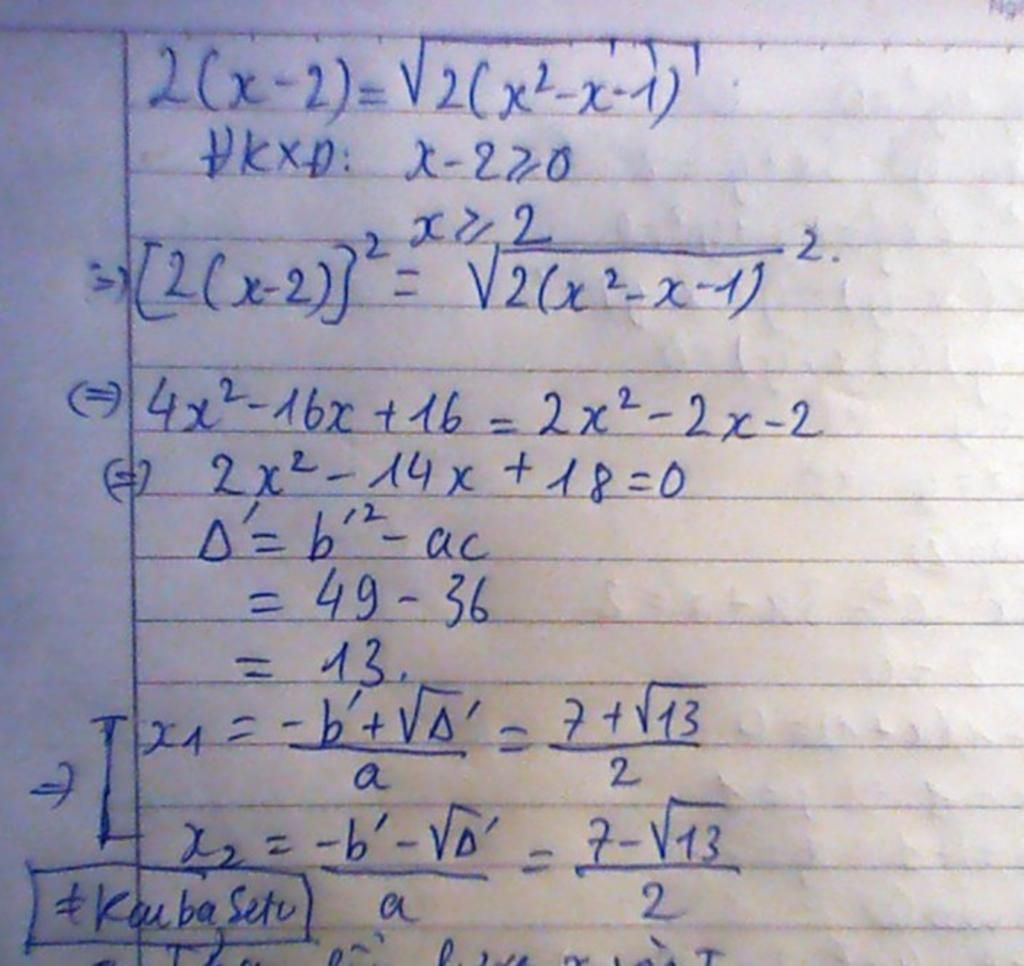 2(x-2)=√2(x²-x-1)
ĐKXĐ: x-2≥0
x≥2
=> [2(x-2)]² = √2(x²-x-1)².
(=) 4x²-16x+16 = 2x²-2x-2
(=) 2x²-14x+18=0
Δ'= b'²- ac
= 49-36
= 13.
=> [ x₁ = (-b'+√Δ')/a = (7+√13)/2
x₂ = (-b'-√Δ')/a = (7-√13)/2